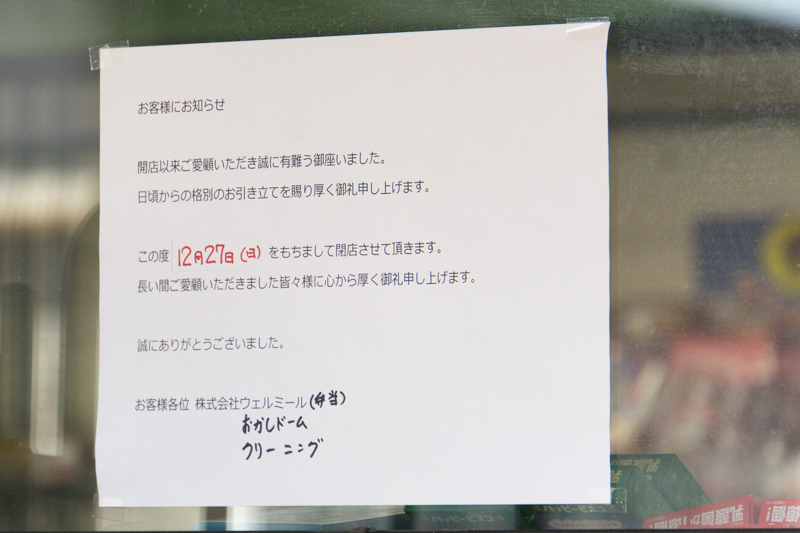 お客様にお知らせ
開店以来ご愛顧いただき誠に有難う御座いました。
日頃からの格別のお引き立てを賜り厚く御礼申し上げます。
この度 12月27日(日) をもちまして閉店させて頂きます。
長い間ご愛顧いただきました皆々様に心から厚く御礼申し上げます。
誠にありがとうございました。
お客様各位 株式会社ウェルミール(弁当)
おかしドーム
クリーニング